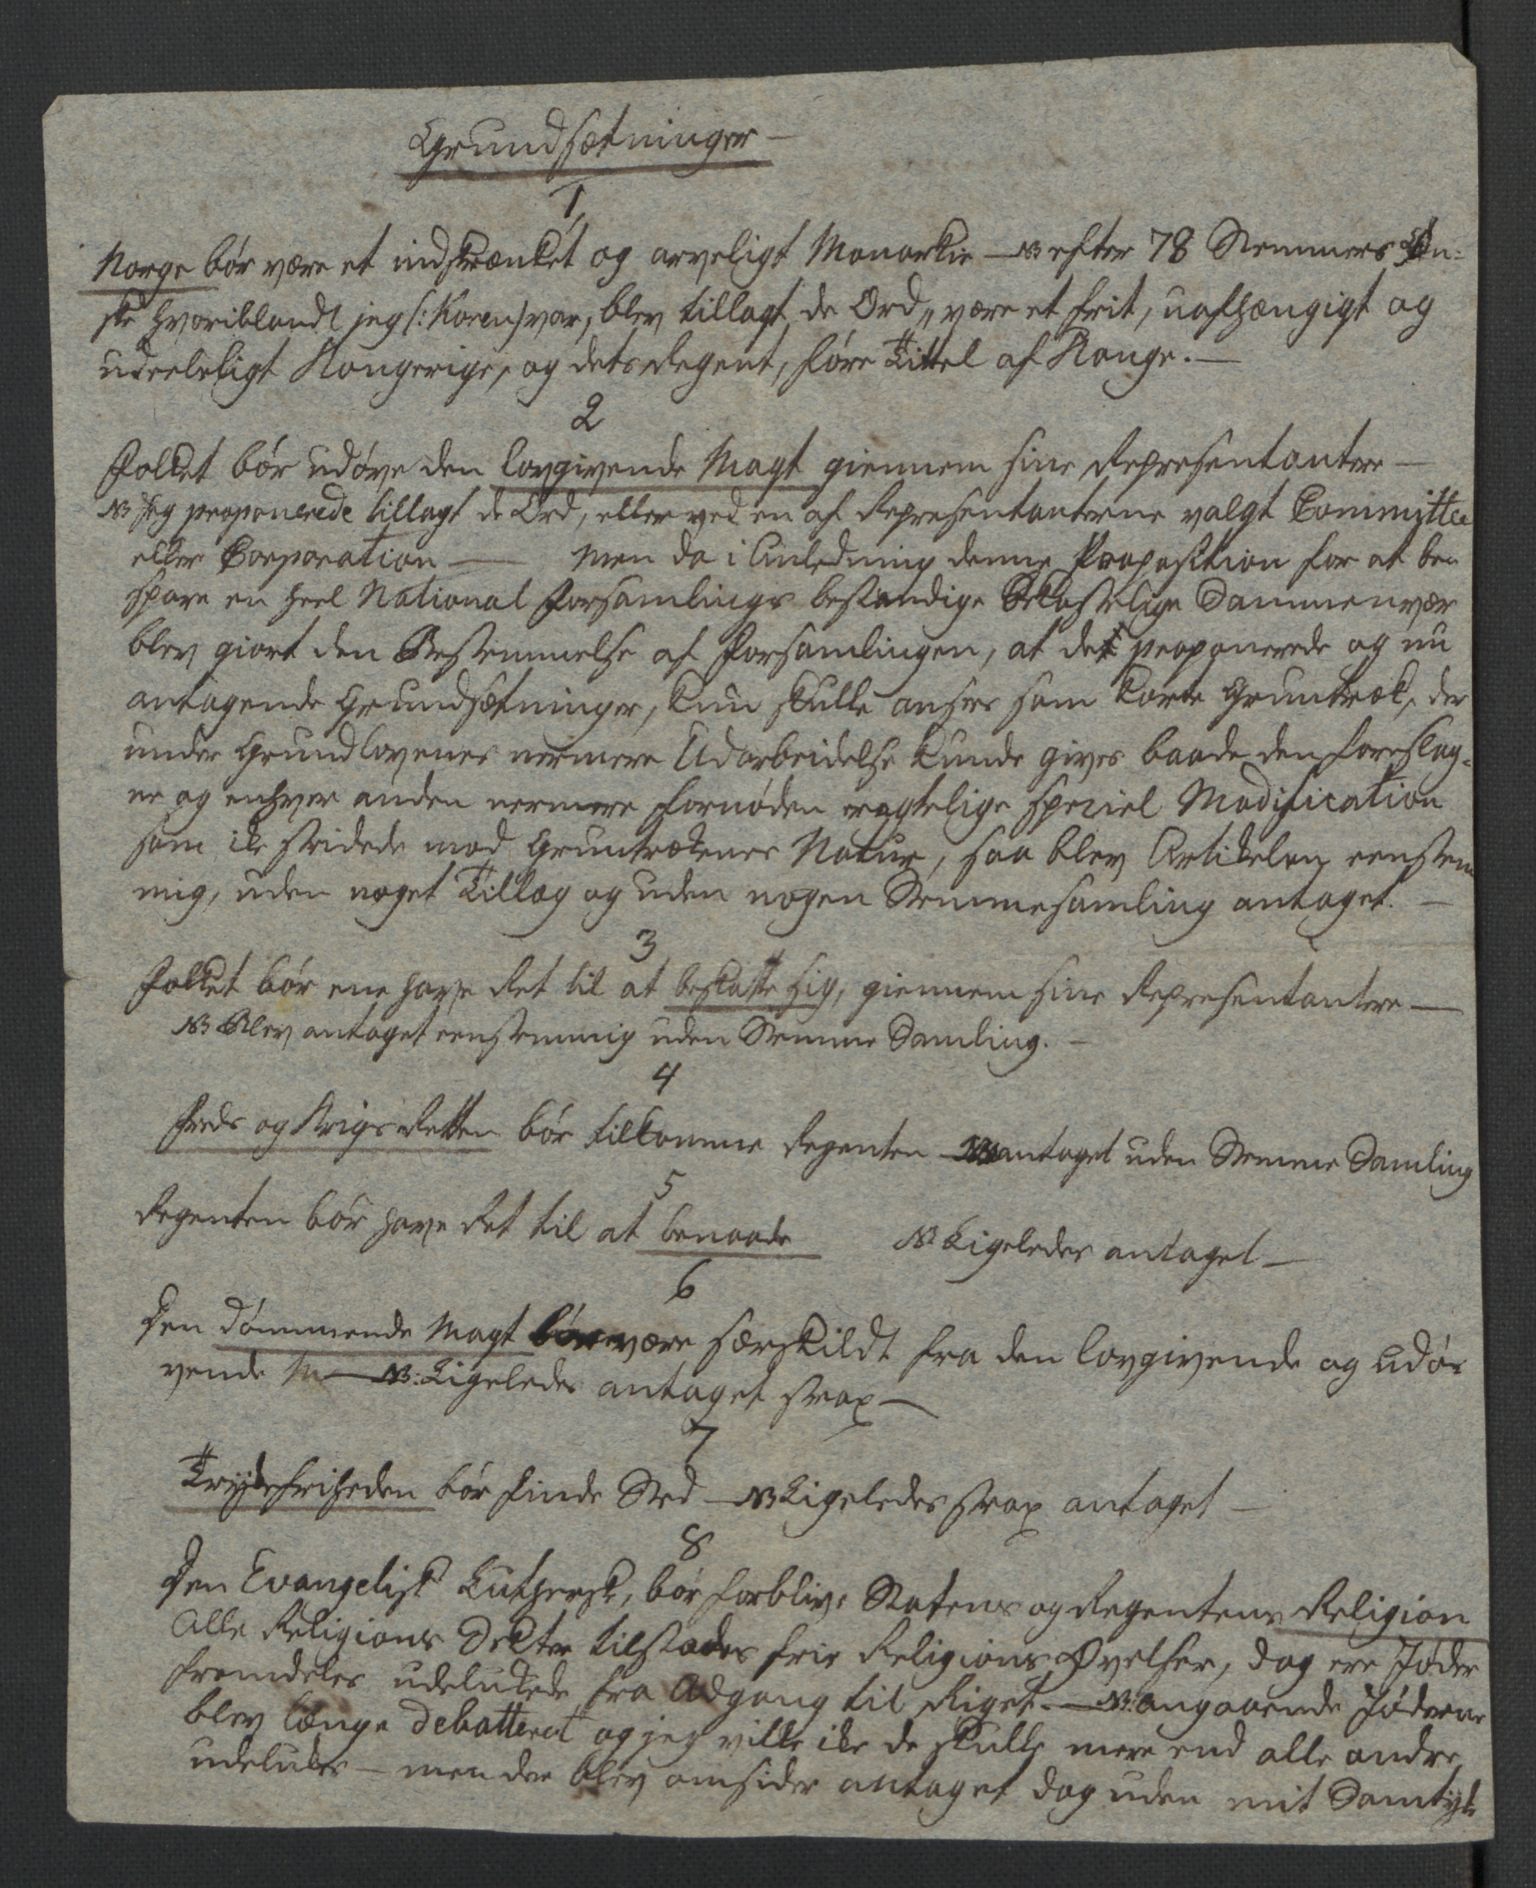 Grundsætninger —
1,
Norge bør være et indskrænket og arveligt Monarkie — NB efter 78 Stemmers Øn-
ske hvoriblandt jeg (: Koren) var, blev tillagt de Ord „ være et frit, uafhængigt og
udeeleligt Kongerige, og dets Regent, føre Tittel af Konge. —
2
Folket bør udøve den lovgivende Magt giennem sine Representantere —
NB Jeg proponerede tillagt de Ord, eller ved en af Representanterne valgt Committee
eller Corporation — men da i Anledning denne Proposition for at be
spare en heel National Forsamlings bestandige Bekostelige Sammenvær
blev giort den Bestemmelse af Forsamlingen, at det proponerede og nu
antagende Grundsætninger, kun skulle ansees som korte Gruntræk, der
under Grundlovenes nermere Udarbeidelse kunde gives baade den foreslag-
ne og enhver anden nermere fornøden eragtelige speciel Modification
som ike stridede mod Gruntrækenes Natur, saa blev Artikelen eenstem
mig, uden noget Tillæg og uden nogen Stemmesamling antaget. —
3
Folket bør ene have Ret til at beskatte sig, giennem sine Representantere —
NB Blev antaget eenstemmig uden Stemme Samling. —
4
Freds og Krigs Retten bør tilkomme Regenten — NB antaget uden Stemme Samling
5
Regenten bør have Ret til at benaade NB Ligeledes antaget —
6
Den dømmende Magt bør være særskildt fra den lovgivende og udøv
vende M — NB: Ligeledes antaget strax —
7
Trykefriheden bør finde Sted — NB Ligeledes strax antaget —
8
Den Evangelisk Luthersk, bør forblive Statens og Regentens Religion
Alle Religions Secter tilstædes frie Religions Øvelser, dog ere Jøder
fremdeles udelukede fra Adgang til Riget. — NB: angaaende Jøderne
blev længe debatteret og jeg ville ike de skulle mere end alle andre
udelukes — men der blev omsider antaget dog uden mit Samtyke